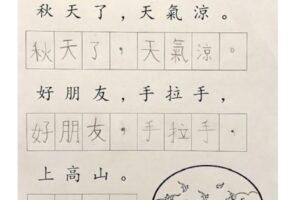 秋天了，天氣涼。
秋天了，天氣涼。
好朋友，手拉手，
好朋友，手拉手，
上高山。